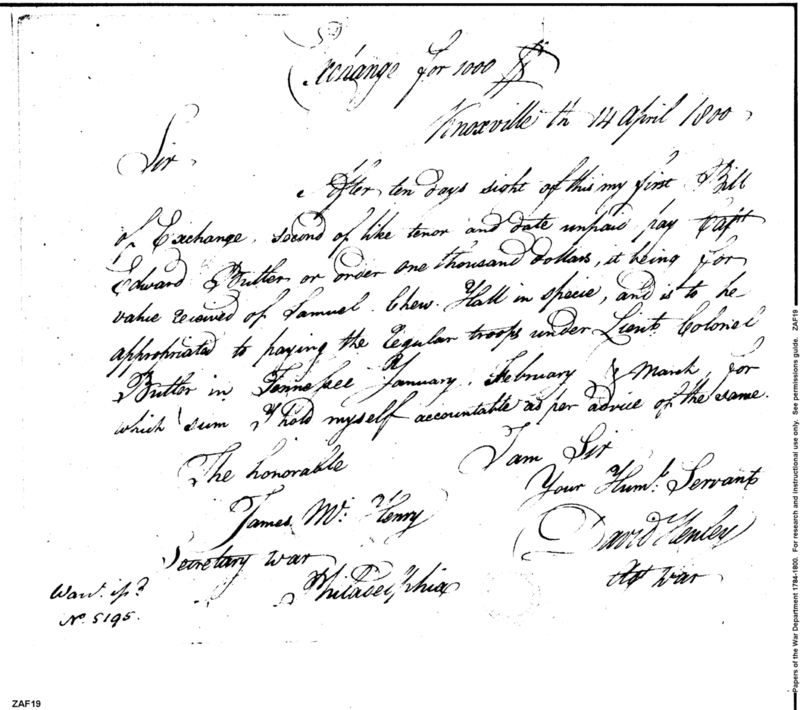 Exchange for 1000 $
Knoxville th 14 April 1800
Sir
After ten days sight of this my first Bill
of Exchange, second of like tenor and date unpaid, pay Capt
Edward Butler or order one thousand dollars, it being for
value received of Samuel. Chew. Hall in specie, and is to be
appropriated to paying the regular troops under Lieut. Colonel
Butler in Tennessee January, February & March, for
which sum I hold myself accountable as per advice of the same.
I am Sir
The honorable
Your Humb. Servant
James Mc. Henry
David Henley
Secretary War
At War
Philadelphia
Wart. issd.
No. 5195.
ZAF19
Papers of the War Department 1784-1800. For research and instructional use only. See permissions guide. ZAF19